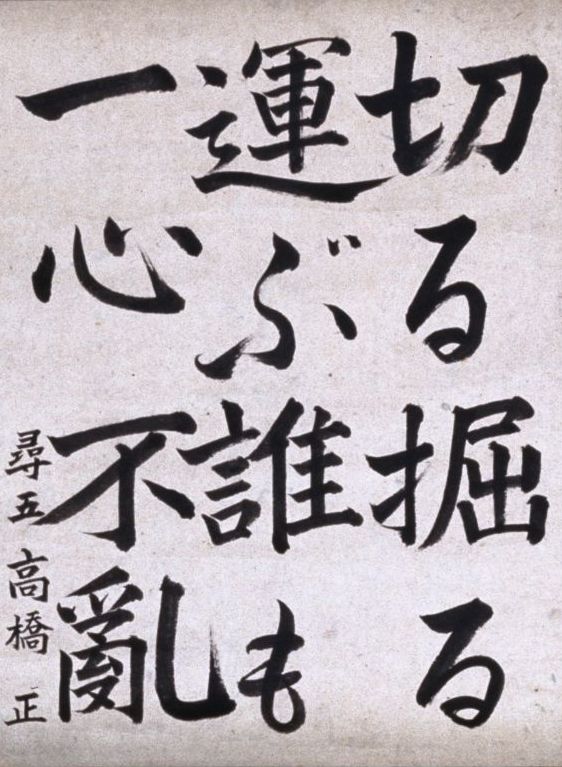 切る掘る
運ぶ誰も
一心不亂
尋五 高橋 正